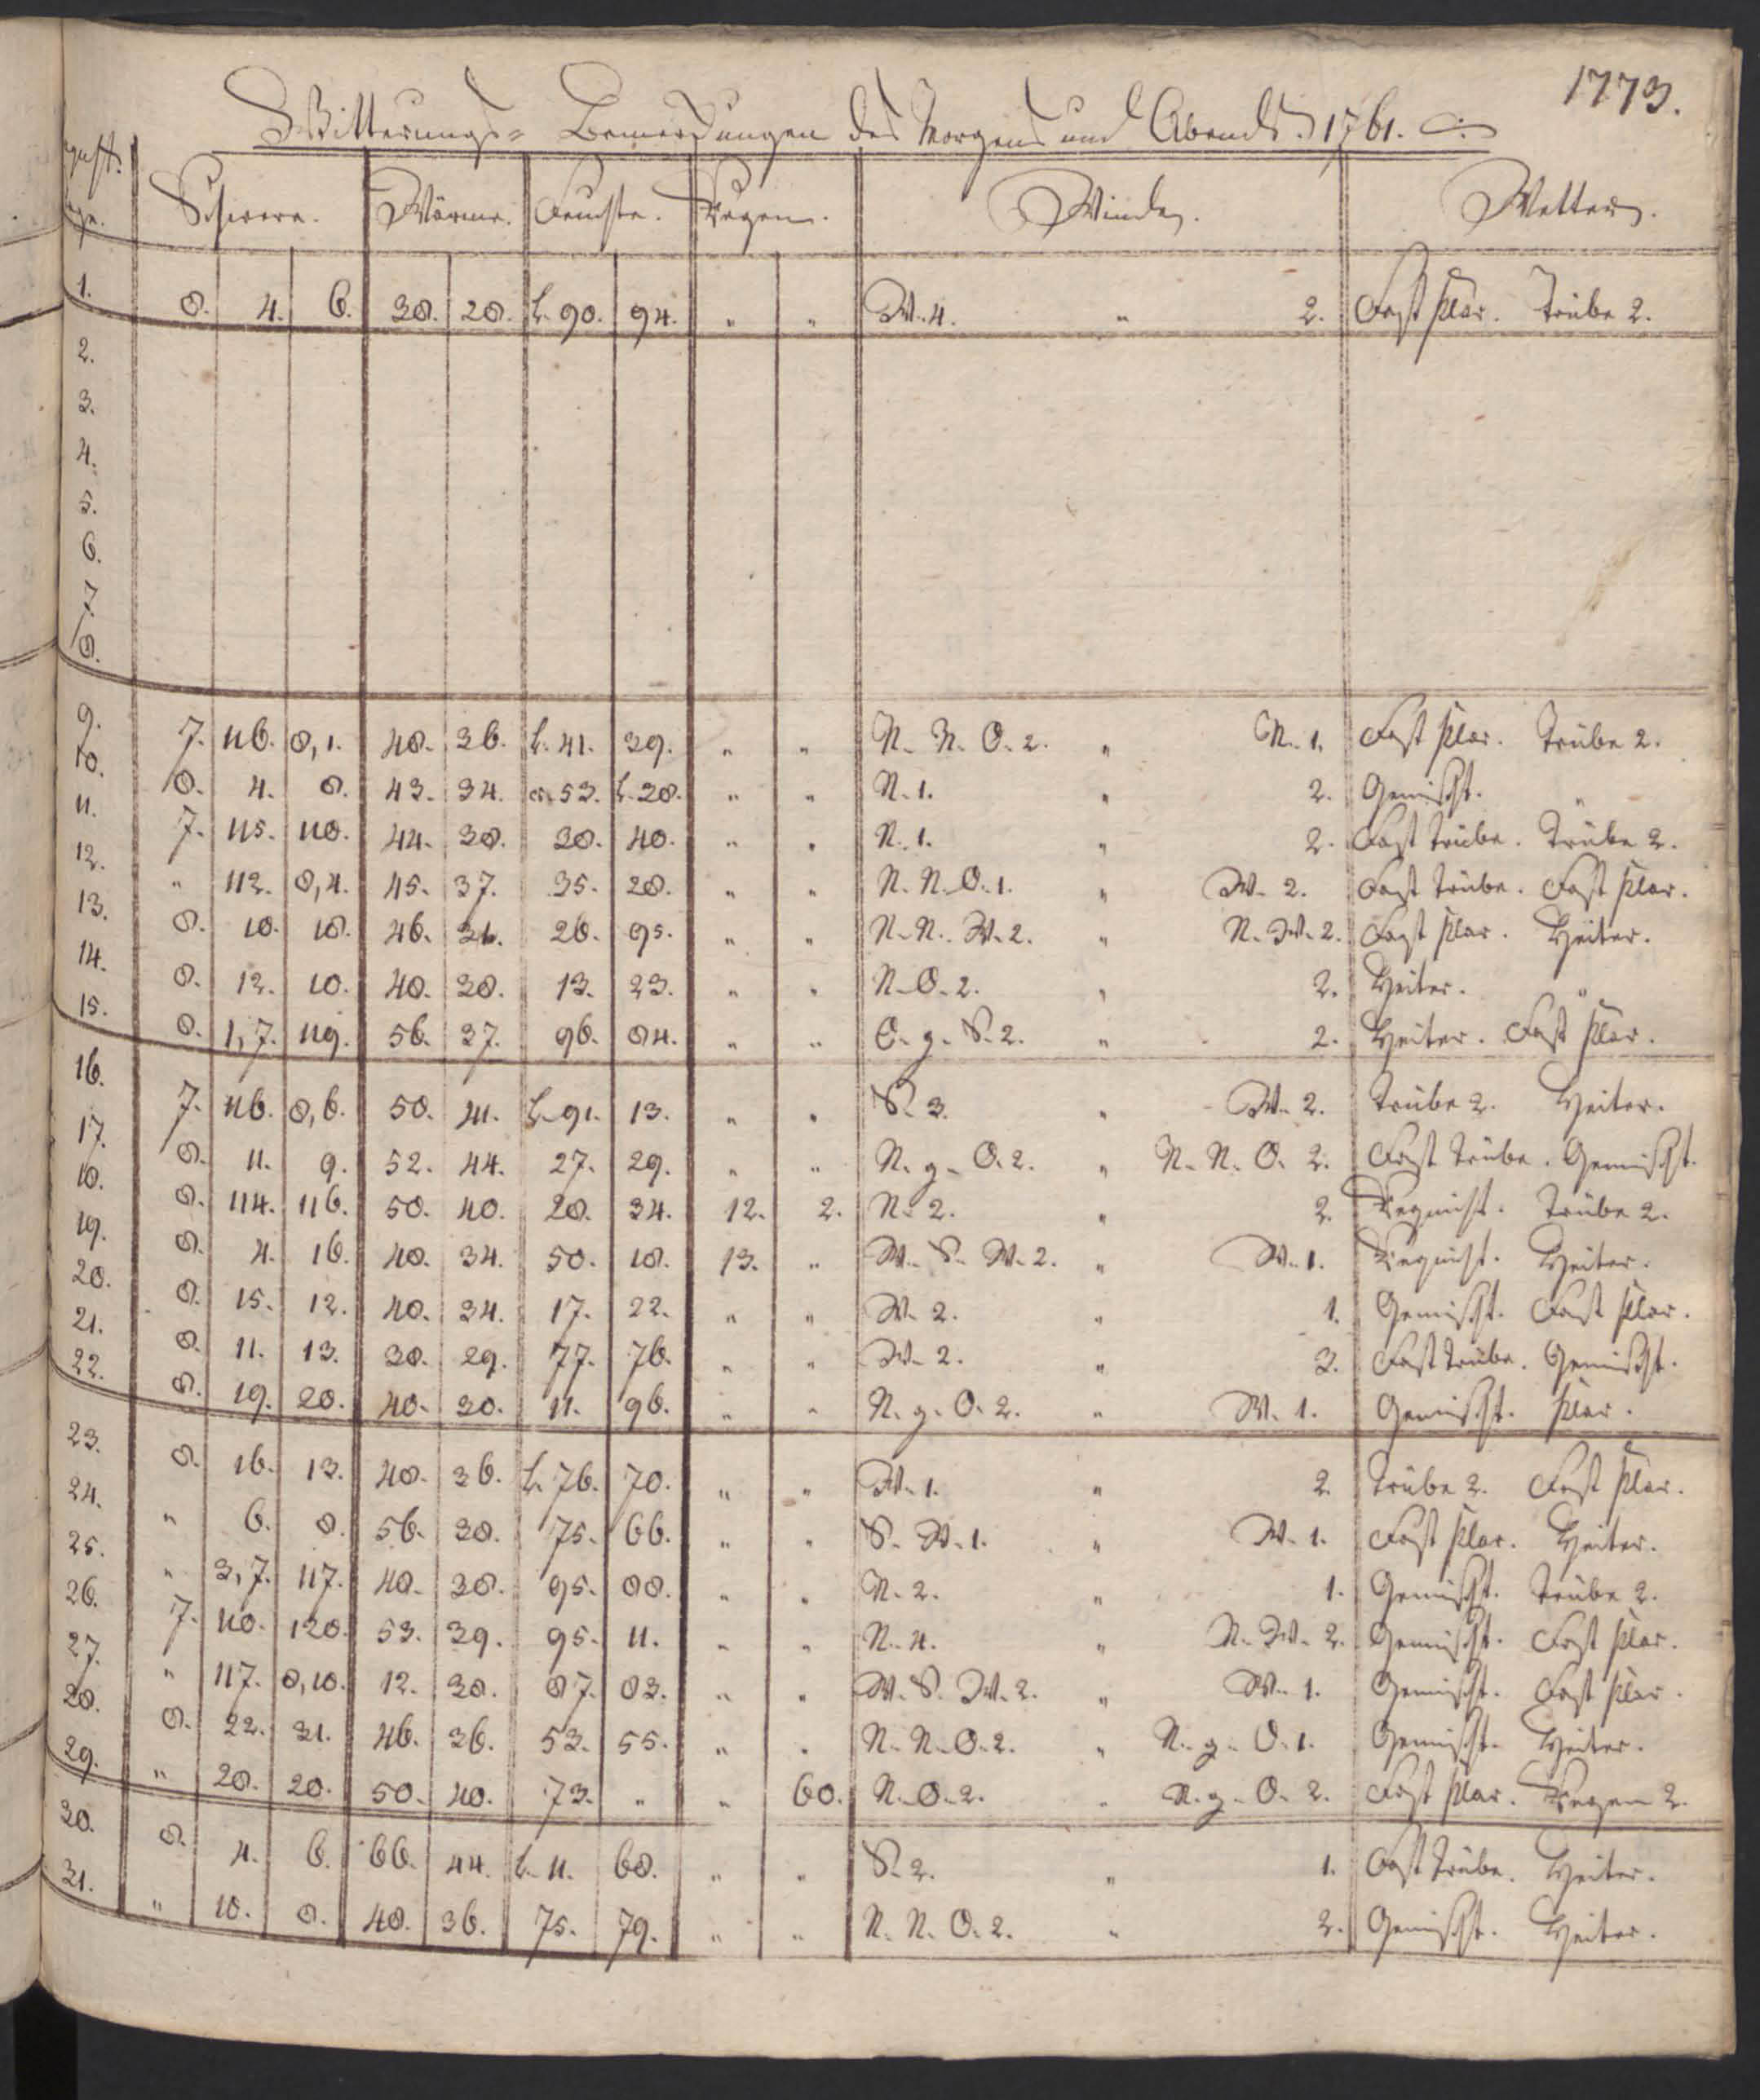 1773.
Witterungs- Bemerkungen des Morgens und Abends. 1761.
gust.
Schwere. Wärme. Feuchte. Regen. Winde. Wetter.
1. 8. 4. 6. 38. 28. L. 90. 94. " " W. 4. " 2. Fast klar. Trübe 2.
2.
3.
4.
5.
6.
7.
8.
9. 7. 116. 8,1. 48. 36. L. 41. 39. " " N. N. O. 2. " N. 1. Fast klar. Trübe 2.
10. 8. 4. 8. 43. 34. 53. L. 28. " " N. 1. " 2. Gemischt. "
11. 7. 115. 118. 44. 38. 38. 40. " " N. 1. " 2. Fast trübe. Trübe 2.
12. " 112. 8,4. 45. 37. 35. 28. " " N. N. O. 1. " W. 2. Fast trübe. Fast klar.
13. 8. 10. 18. 46. 31. 26. 95. " " N. N. W. 2. " N. W. 2. Fast klar. Heiter.
14. 8. 12. 10. 48. 38. 13. 23. " " N. O. 2. " 2. Heiter. "
15. 8. 1,7. 119. 56. 37. 96. 84. " " O. g. S. 2. " 2. Heiter. Fast klar.
16. 7. 116. 8,6. 50. 41. L. 91. 13. " " S. 3. " W. 2. Trübe 2. Heiter.
17. 8. 11. 9. 52. 44. 27. 29. " " N. g. O. 2. " N. N. O. 2. Fast trübe. Gemischt.
18. 8. 114. 116. 50. 40. 28. 34. 12. 2. N. 2. " 2. Regnicht. Trübe 2.
19. 8. 4. 16. 48. 34. 50. 18. 13. " W. S. W. 2. " W. 1. Regnicht. Heiter.
20. 8. 15. 12. 40. 34. 17. 22. " " W. 2. " 1. Gemischt. Fast klar.
21. 8. 11. 13. 38. 29. 77. 76. " " W. 2. " 3. Fast trübe. Gemischt.
22. 8. 19. 20. 40. 30. 11. 96. " " N. g. O. 2. " W. 1. Gemischt. klar.
23. 8. 16. 13. 48. 36. L. 76. 70. " " W. 1. " 2. Trübe 2. Fast klar.
24. " 6. 8. 56. 38. 75. 66. " " S. W. 1. " W. 1. Fast klar. Heiter.
25. " 3,7. 117. 48. 38. 95. 88. " " N. 2. " 1. Gemischt. Trübe 2.
26. 7. 118. 120. 53. 39. 95. 11. " " N. 4. " N. W. 2. Gemischt. Fast klar.
27. " 117. 8,10. 12. 38. 87. 83. " " W. S. W. 2. " W. 1. Gemischt. Fast klar.
28. 8. 22. 31. 46. 36. 53. 55. " " N. N. O. 2. " N. g. O. 1. Gemischt. Heiter.
29. " 28. 20. 50. 40. 73. " " 60. N. O. 2. " N. g. O. 2. Fast klar. Regen 2.
30. 8. 4. 6. 66. 44. L. 11. 68. " " S. 2. " 1. Fast trübe. Heiter.
31. " 10. 8. 48. 36. 75. 79. " " N. N. O. 2. " 2. Gemischt. Heiter.